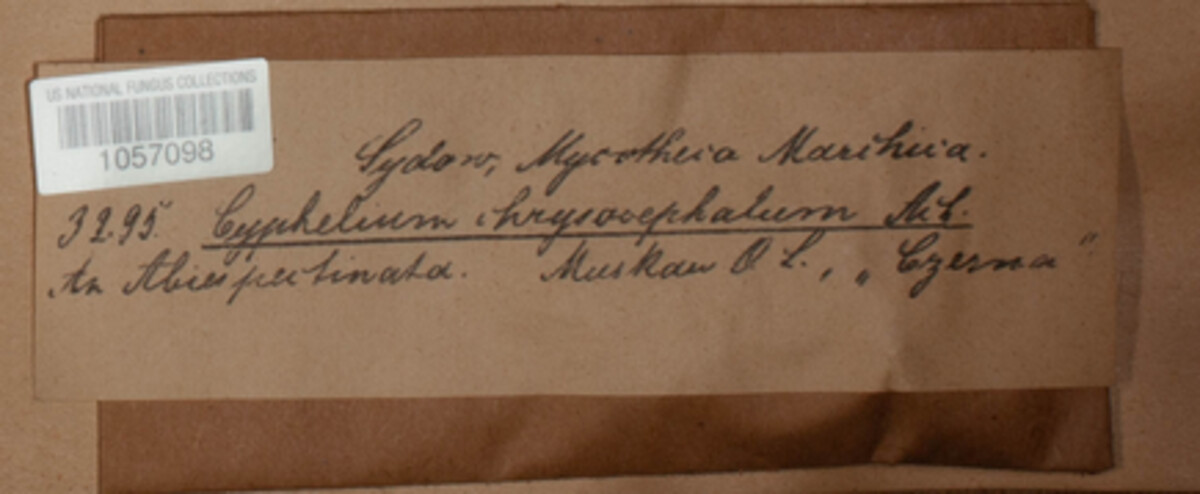 US NATIONAL FUNGUS COLLECTIONS
1057098
Sydow, Mycotheca Marchica.
3295. Cyphelium chrysocephalum Ach.
An Abies pectinata. Muskau O L., „Czerna“